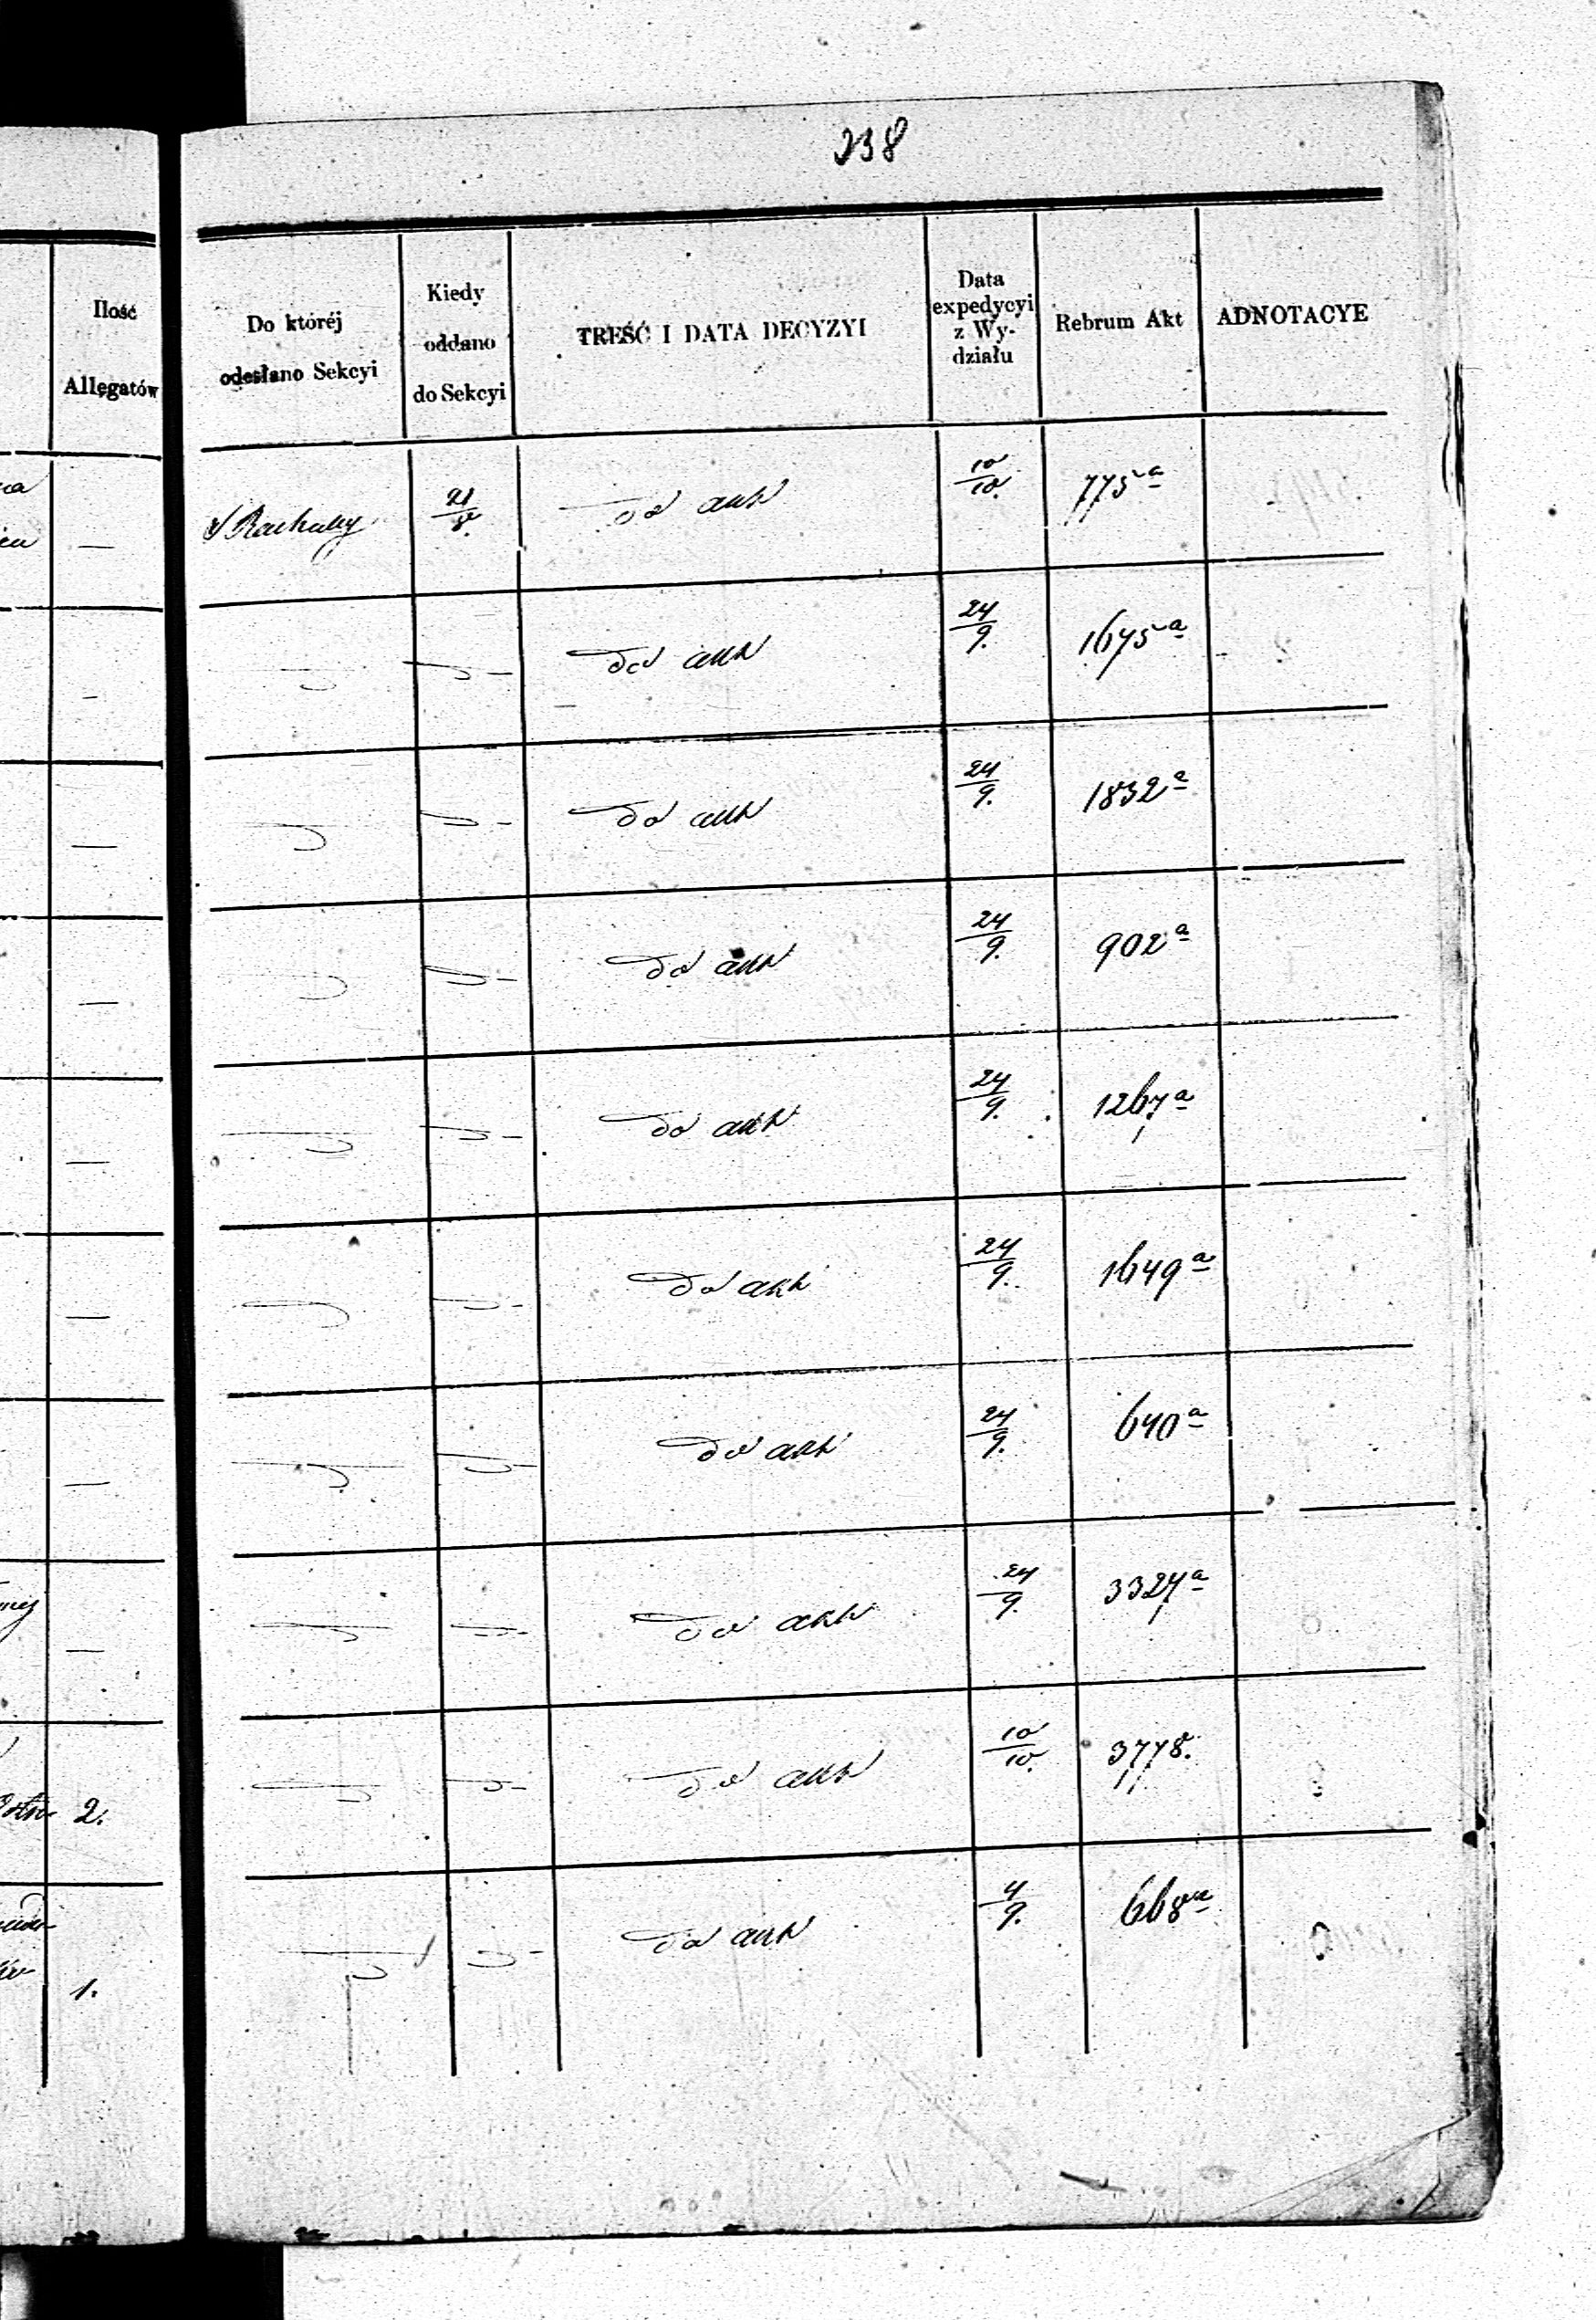 238
Ilość
Allegatów
Do któréj
odesłano Sekcyi
Kiedy
oddano
do Sekcyi
TREŚĆ I DATA DECYZYI
Data
expedycyi
z Wy-
działu
Rebrum Akt
ADNOTACYE
— Rachuby 21/8. do akt 10/10. 775 a
— do akt 24/9. 1675 a
— do akt 24/9. 1832 a
— do akt 24/9. 902 a
— do akt 24/9. 1267 a
— do akt 24/9. 1649 a
— do akt 24/9. 640 a
— do akt 24/9. 3327 a
2. do akt 10/10. 3778.
1. do akt 4/9. 668 a